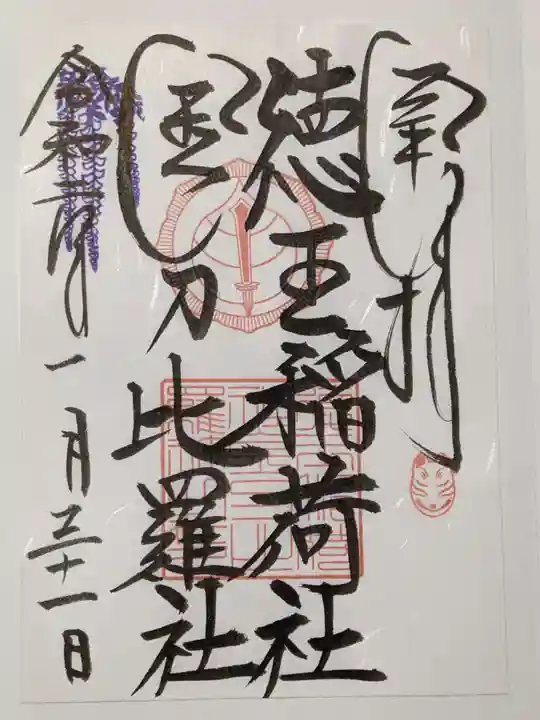 奉拝
徳王稲荷社
金刀比羅社
令和六年一月三十一日